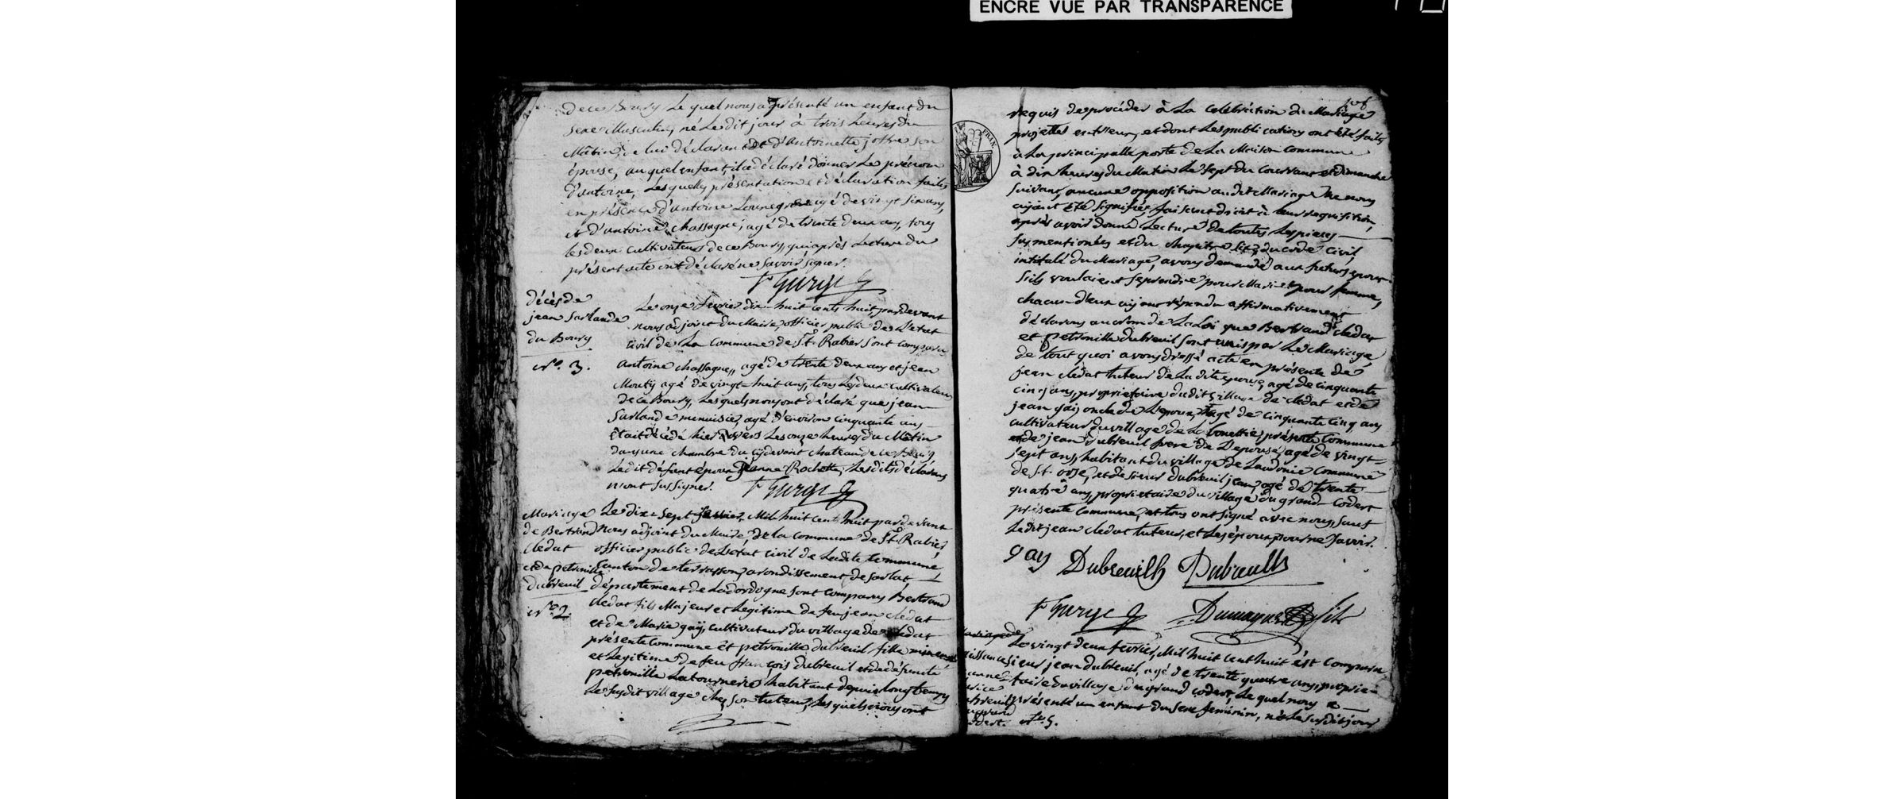 ENCRE VUE PAR TRANSPARENCE
de ce Bourg Le quel nous a présenté un enfant du
sexe Masculin, né Le dit jour à trois heures du
Matin, de lui déclarant et d'Antoinette joffre son
épouse, au quel enfant, il a déclaré donner Le prénom
d'antoine, Lesquelles présentation et déclaration faites
en présence d'antoine agé de vingt six ans,
et d'antoine chassagne, agé de trente deux ans, tous
les deux cultivateurs de ce Bourg, qui après Lecture du
présent acte ont déclaré ne savoir signer.
décès de
jean Sarlande
du Bourg
N.o 3.
Le onze fevrier dix huit cents huit, pardevant
nous adjoint du Maire, officier public de L'état
civil de La Commune de St. Rabier sont comparu
antoine chassagne, agé de trente deux ans et jean
Mouty agé de vingt huit ans, tous Les deux cultivateurs
de ce Bourg, Lesquels nous ont déclaré que jean
Sarlande menuisier, agé d'environ cinquante ans
était décédé hier vers Les onze heures du Matin
dans une chambre du cydevant chateau de ce Bourg
Ledit défunt époux de jeanne Rochette, Lesdits déclarans
n'ont su signer.
Mariage
de Bertrand
Cledat
et de petronille
dubreuil
N.o 2.
Le dix sept fevrier, Mil huit cent huit par devant
Nous adjoint du Maire, de la commune de St. Rabier
officier public de L'etat civil de Ladite Commune
canton de terrasson arondissement de sarlat
département de La dordogne sont comparus Bertrand
cledat fils Majeur et Legitime de feu jean cledat
et de Marie gay, cultivateur du village de cledat
présente Commune et petronille dubreuil fille mineure
et Legitime de feu françois dubreuil et de défunte
petronille Latournerie habitant depuis Longtemps
Le susdit village chez son tuteur, Lesquels nous ont
requis de procéder à La celebration du Mariage
projetté entr'eux, et dont Les publications ont été faites
à La principalle porte de La Maison commune
à dix heures du Matin Le sept du courrant et dimanche
suivant, aucune opposition audit Mariage ne nous
ayant été signifiée, faisant droit à leur requisition,
après avoir donné Lecture de toutes Les pieces
sus mentionées et du chapitre du code civil,
intitulé du Mariage, avons demandé aux futurs epoux
s'ils voulaient se prendre pour Mari et pour femme,
chacun d'eux ayant répondu affirmativement
déclarons au nom de La Loi que Bertrand cledat
et petronille dubreuil sont unis par Le Mariage
de tout quoi avons dréssé acte en présence de
jean cledat tuteur de La dite epouse, agé de cinquante
cinq ans, propriétaire dudit village de cledat et de
jean gay oncle de L'epoux agé de cinquante cinq ans
cultivateur du village de La présente Commune
et de jean dubreuil frere de L'epouse, agé de vingt
sept ans, habitant du village de Commune
de St. orse, et de sieur dubreuil jean, agé de trente
quatre ans, propriétaire du village du grand codert
présente Commune, et tous ont signé avec nous, sauf
Ledit jean cledat tuteur, et Les époux pour ne savoir.
gay Dubreuilh Dubreuilh
fils
Le vingt deux fevrier, Mil huit cent huit est comparu
sieur jean dubreuil, agé de trente quatre ans, proprié-
taire du village du grand codert, Le quel nous a
présenté un enfant du sexe féminin, née Le susdit jour
N.o 5.